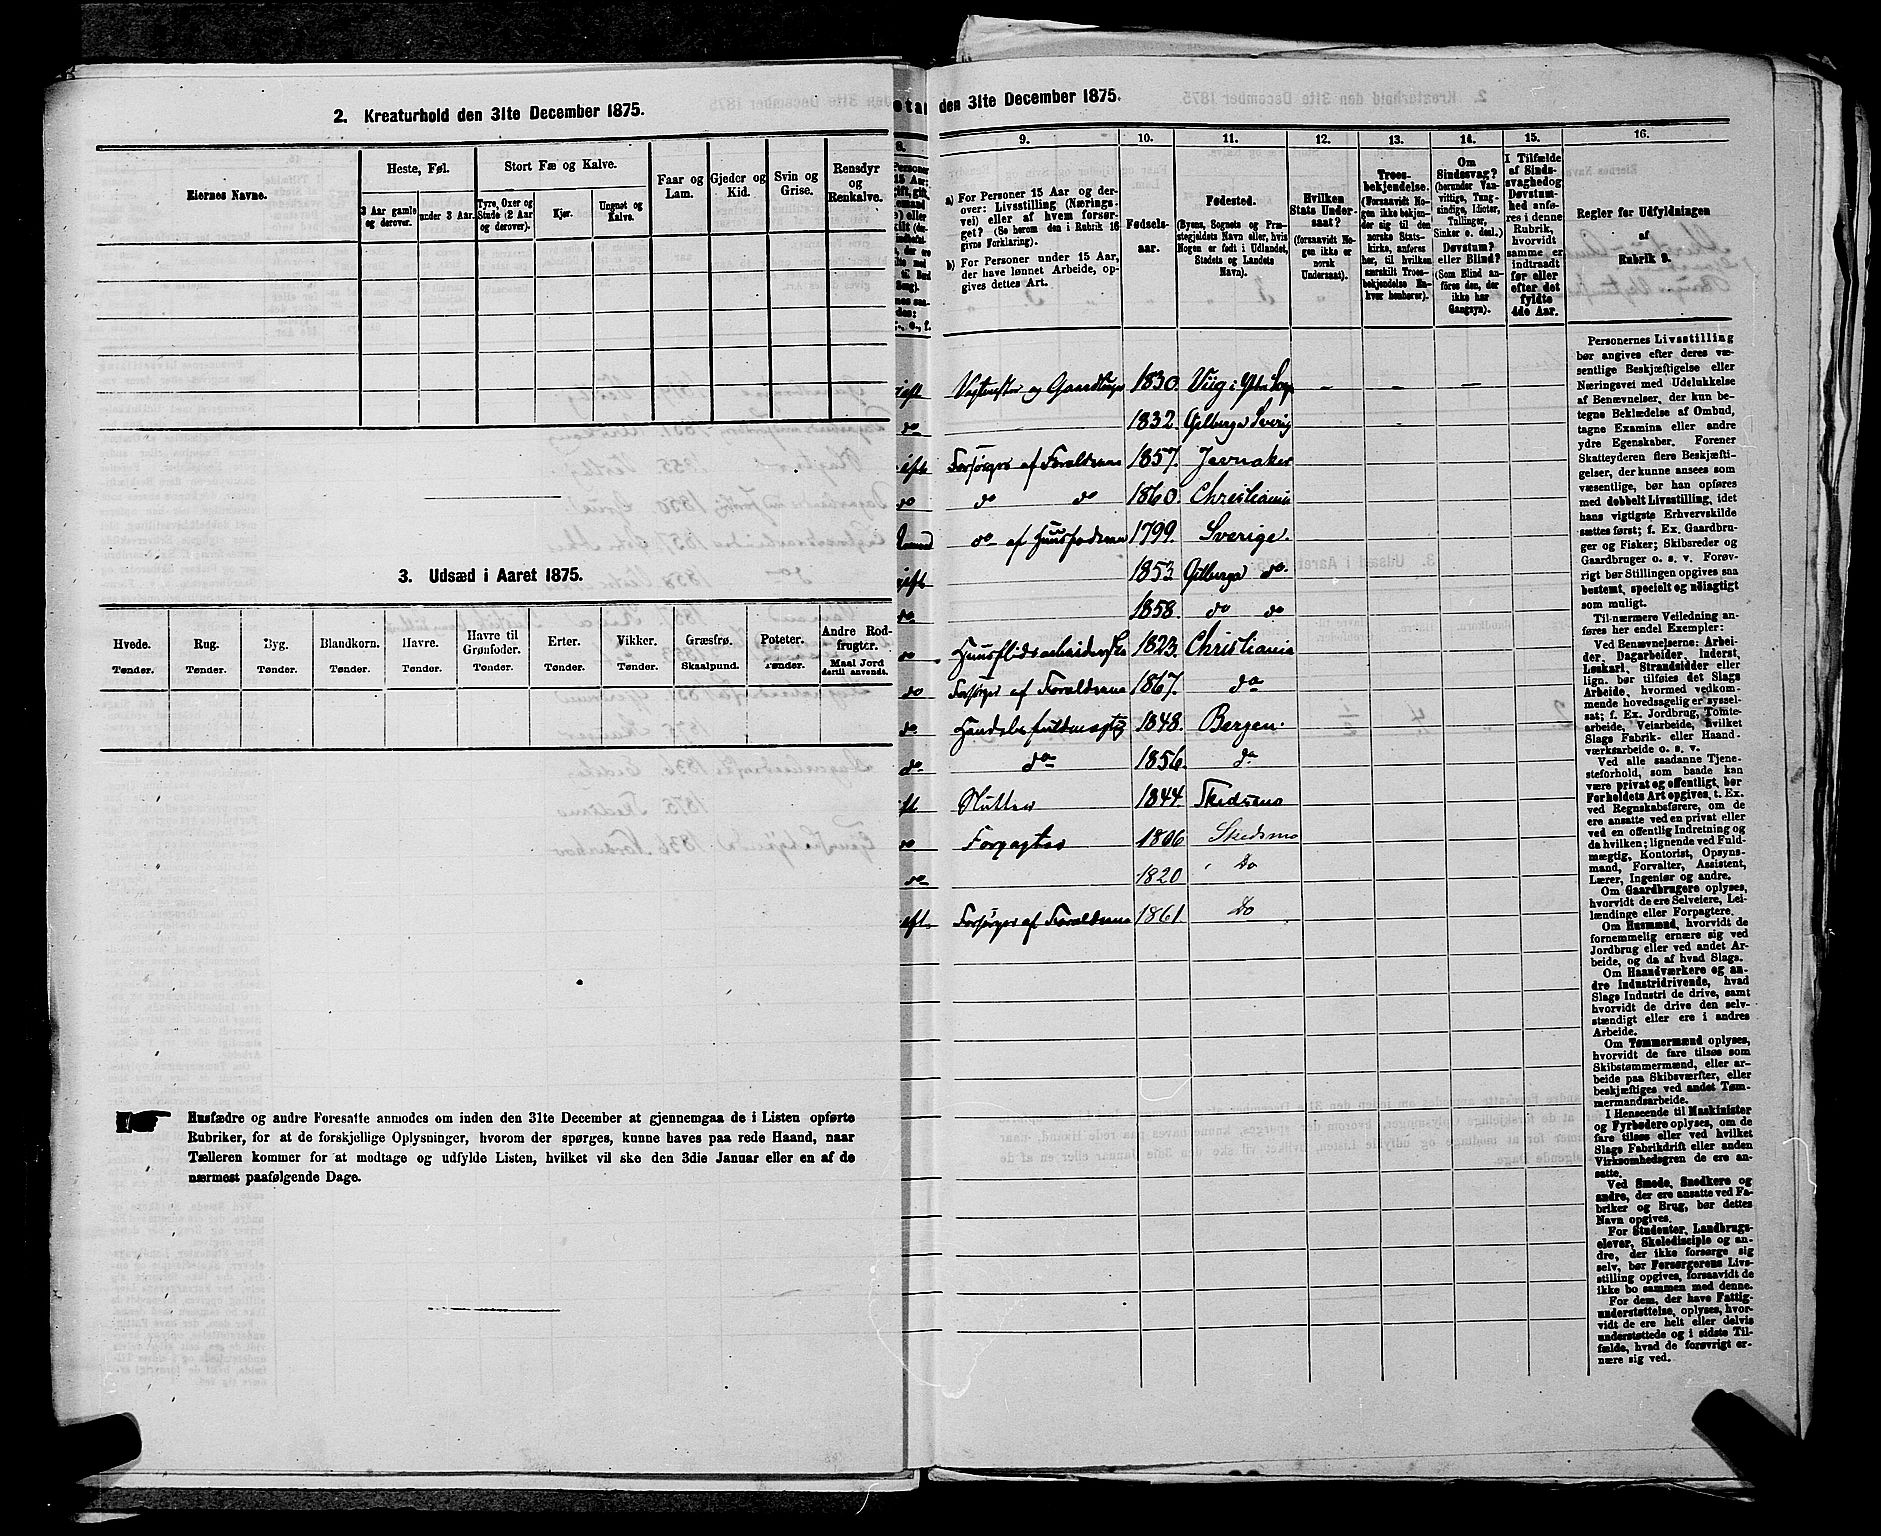 2. Kreaturhold den 31te December 1875.
Eiernes Navne.
Heste, Føl.
Stort Fæ og Kalve.
Faar og Lam.
Gjeder og Kid.
Svin og Grise.
Rensdyr og Renkalve.
3 Aar gamle og derover.
under 3 Aar.
Tyre, Oxer og Stude (2 Aar og derover).
Kjør.
Ungnøt og Kalve.
3. Udsæd i Aaret 1875.
Hvede. Rug. Byg. Blandkorn. Havre. Havre til Grønfoder. Erter. Vikker. Græsfrø. Poteter. Andre Rodfrugter.
Tønder. Tønder. Tønder. Tønder. Tønder. Tønder. Tønder. Tønder. Skaalpund. Tønder. Maal Jord dertil anvendt.
Husfædre og andre Foresatte anmodes om inden den 31te December at gjennemgaa de i Listen opførte
Rubriker, for at de forskjellige Oplysninger, hvorom der spørges, kunne haves paa rede Haand, naar
Tælleren kommer for at modtage og udfylde Listen, hvilket vil ske den 3die Januar eller en af de
nærmest paafølgende Dage.
den 31te December 1875.
8. 9. 10. 11. 12. 13. 14. 15. 16.
a) For Personer 15 Aar og derover: Livsstilling (Næringsvei) eller af hvem forsørget? (Se herom den i Rubrik 16 givne Forklaring).
b) For Personer under 15 Aar, der have lønnet Arbeide, opgives dettes Art.
Fødselsaar.
Fødested.
(Byens, Sognets og Præstegjeldets Navn eller, hvis Nogen er født i Udlandet, Stedets og Landets Navn).
Hvilken Stats Undersaat?
(forsaavidt Nogen ikke er norsk Undersaat).
Troesbekjendelse.
(Forsaavidt Nogen ikke bekjender sig til den norske Statskirke, anføres her, til hvilken særskilt Troesbekjendelse Enhver henhører).
Om Sindssvag?
(herunder Vanvittige, Tungsindige, Idioter, Tullinger, Sinker o. desl.)
Døvstum?
eller Blind?
(Som Blind anføres den, der ikke har Gangsyn).
I Tilfælde af Sindssvaghed og Døvstumhed anføres i denne Rubrik, hvorvidt samme er indtraadt før eller efter det fyldte 4de Aar.
Regler for Udfyldningen
af
Rubrik 9.
Vagtmester og Gaardbruger 1830. Viig i Ytter Sogn – – – –
do 1832. Gilberga Sverig
Forsørges af Forældrene 1857. Jevnaker
do do do 1860. Christiania
do af Huusfaderen 1799. Sverige.
1853. Gilberga do
do 1858 do do
do Huusflidsarbeiderske 1823. Christiania
do Forsørges af Forældrene 1867. do
do Handelsfuldmægtig 1848. Bergen.
do do 1856. do
1844. Skedsmo
do Forpagter 1806 Skedsmo
do 1820 Do
Forsørges af Forældrene 1861. Do
Personernes Livsstilling
bør angives efter deres væ-
sentlige Beskjæftigelse eller
Næringsvei med Udelukkelse
af Benævnelser, der kun be-
tegne Beklædelse af Ombud,
tagne Examina eller andre
ydre Egenskaber. Forener
Skatteyderen flere Beskjæfti-
gelser, der kunne ansees som
væsentlige, bør han opføres
med dobbelt Livsstilling, idet
hans vigtigste Erhvervskilde
sættes først; f. Ex. Gaardbru-
ger og Fisker; Skibsreder og
Gaardbruger o. s. v. Forøv-
rigt bør Stillingen opgives saa
bestemt, specielt og nøiagtigt
som muligt.
Til nærmere Veiledning an-
føres her endel Exempler:
Ved Benævnelserne: Arbei-
der, Dagarbeider, Inderst,
Løskarl, Strandsidder eller
lign. bør tilføies det Slags
Arbeide, hvormed vedkom-
mende hovedsagelig er syssel-
sat; f. Ex. Jordbrug, Tomte-
arbeide, Veiarbeide, hvilket
Slags Fabrik- eller Haand-
værksarbeide o. s. v.
Ved alle saadanne Tjene-
steforhold, som baade kan
være privat og offentligt, bør
Forholdets Art opgives, t. Ex.
ved Regnskabsførere, om de
ere ansatte ved en privat eller
ved en offentlig Indretning og
da hvilken; lignende ved Fuld-
mægtig, Kontorist, Opsyns-
mand, Forvalter, Assistent,
Lærer, Ingeniør og andre.
Om Gaardbrugere oplyses,
hvorvidt de ere Selveiere, Lei-
lændinge eller Forpagtere.
Om Husmænd, hvorvidt de
fornemmelig ernære sig ved
Jordbrug eller ved andet Ar-
beide, og da af hvad Slags.
Om Haandværkere og an-
dre Industridrivende, hvad
Slags Industri de drive, samt
hvorvidt de drive den selv-
stændigt eller ere i andres
Arbeide.
Om Tømmermænd oplyses,
hvorvidt de fare tilsøs som
Skibstømmermænd, eller ar-
beide paa Skibsværfter, eller
beskjæftiges ved andet Tøm-
mermandsarbeide.
I Henseende til Maskinister
og Fyrbødere oplyses, om de
fare tilsøs eller ved hvilket
Slags Fabrikdrift eller anden
Virksomhedsgren de ere an-
satte.
Ved Smede, Snedkere og
andre, der ere ansatte ved Fa-
briker og Brug, bør dettes
Navn opgives.
For Studenter, Landbrugs-
elever, Skoledisciple og an-
dre, der ikke forsørge sig
selv, bør Forsørgerens Livs-
stilling opgives, forsaavidt de
ikke bo sammen med denne.
For dem, der have Fattig-
understøttelse, oplyses, hvor-
vidt de ere helt eller delvis
understøttede og i sidste Til-
fælde, hvad de forøvrigt er-
nære sig ved.